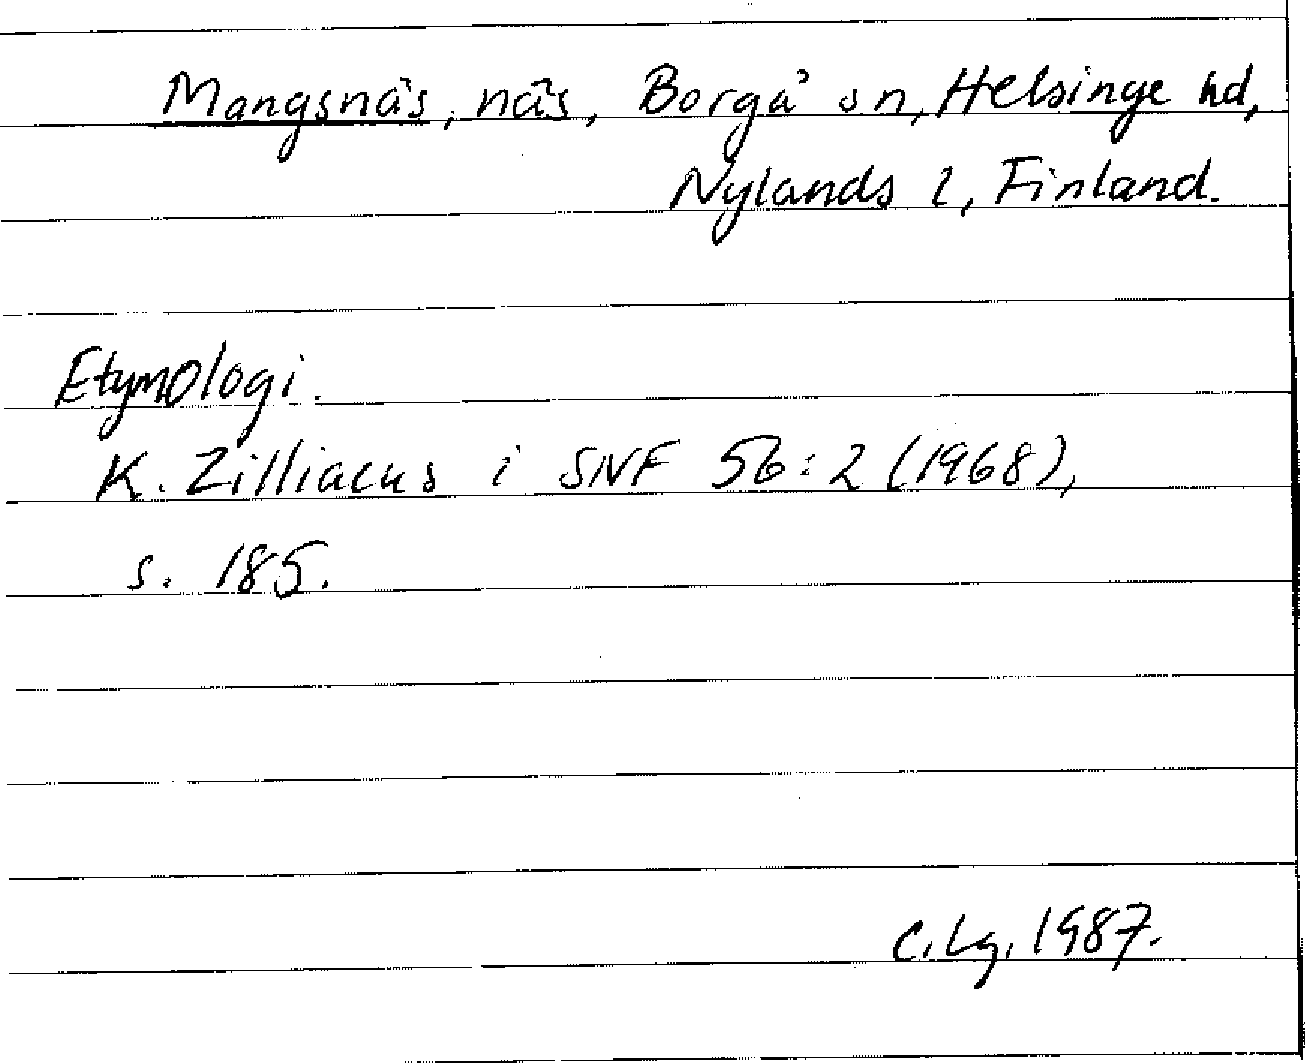 Mangsnäs, näs, Borgå sn, Helsinge hd,
Nylands l, Finland.
Etymologi.
K. Zilliacus i SNF 56:2 (1968),
s. 185.
C. Lg, 1987.